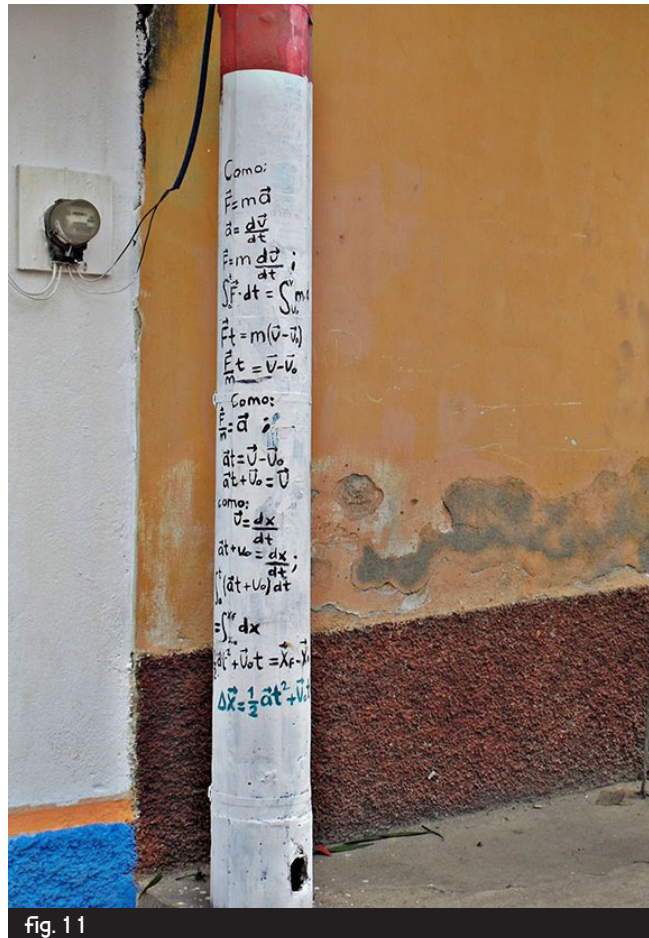 Como:
F⃗=ma⃗
a⃗=dv⃗/dt
F⃗=m dv⃗/dt ;
∫₀ᵗF⃗·dt = ∫ᵥ₀ᵛ m
F⃗t=m(v⃗-v⃗₀)
F⃗/m t = v⃗-v⃗₀
Como:
F⃗/m=a⃗ ;
a⃗t=v⃗-v⃗₀
a⃗t+v⃗₀=v⃗
como:
v⃗=dx/dt
a⃗t+v₀=dx/dt;
∫₀ᵗ(a⃗t+v₀)dt
=∫ₓ₀ˣᶠ dx
a⃗t²+v⃗₀t=x⃗f-x⃗
Δx⃗=½a⃗t²+v⃗₀t
fig. 11